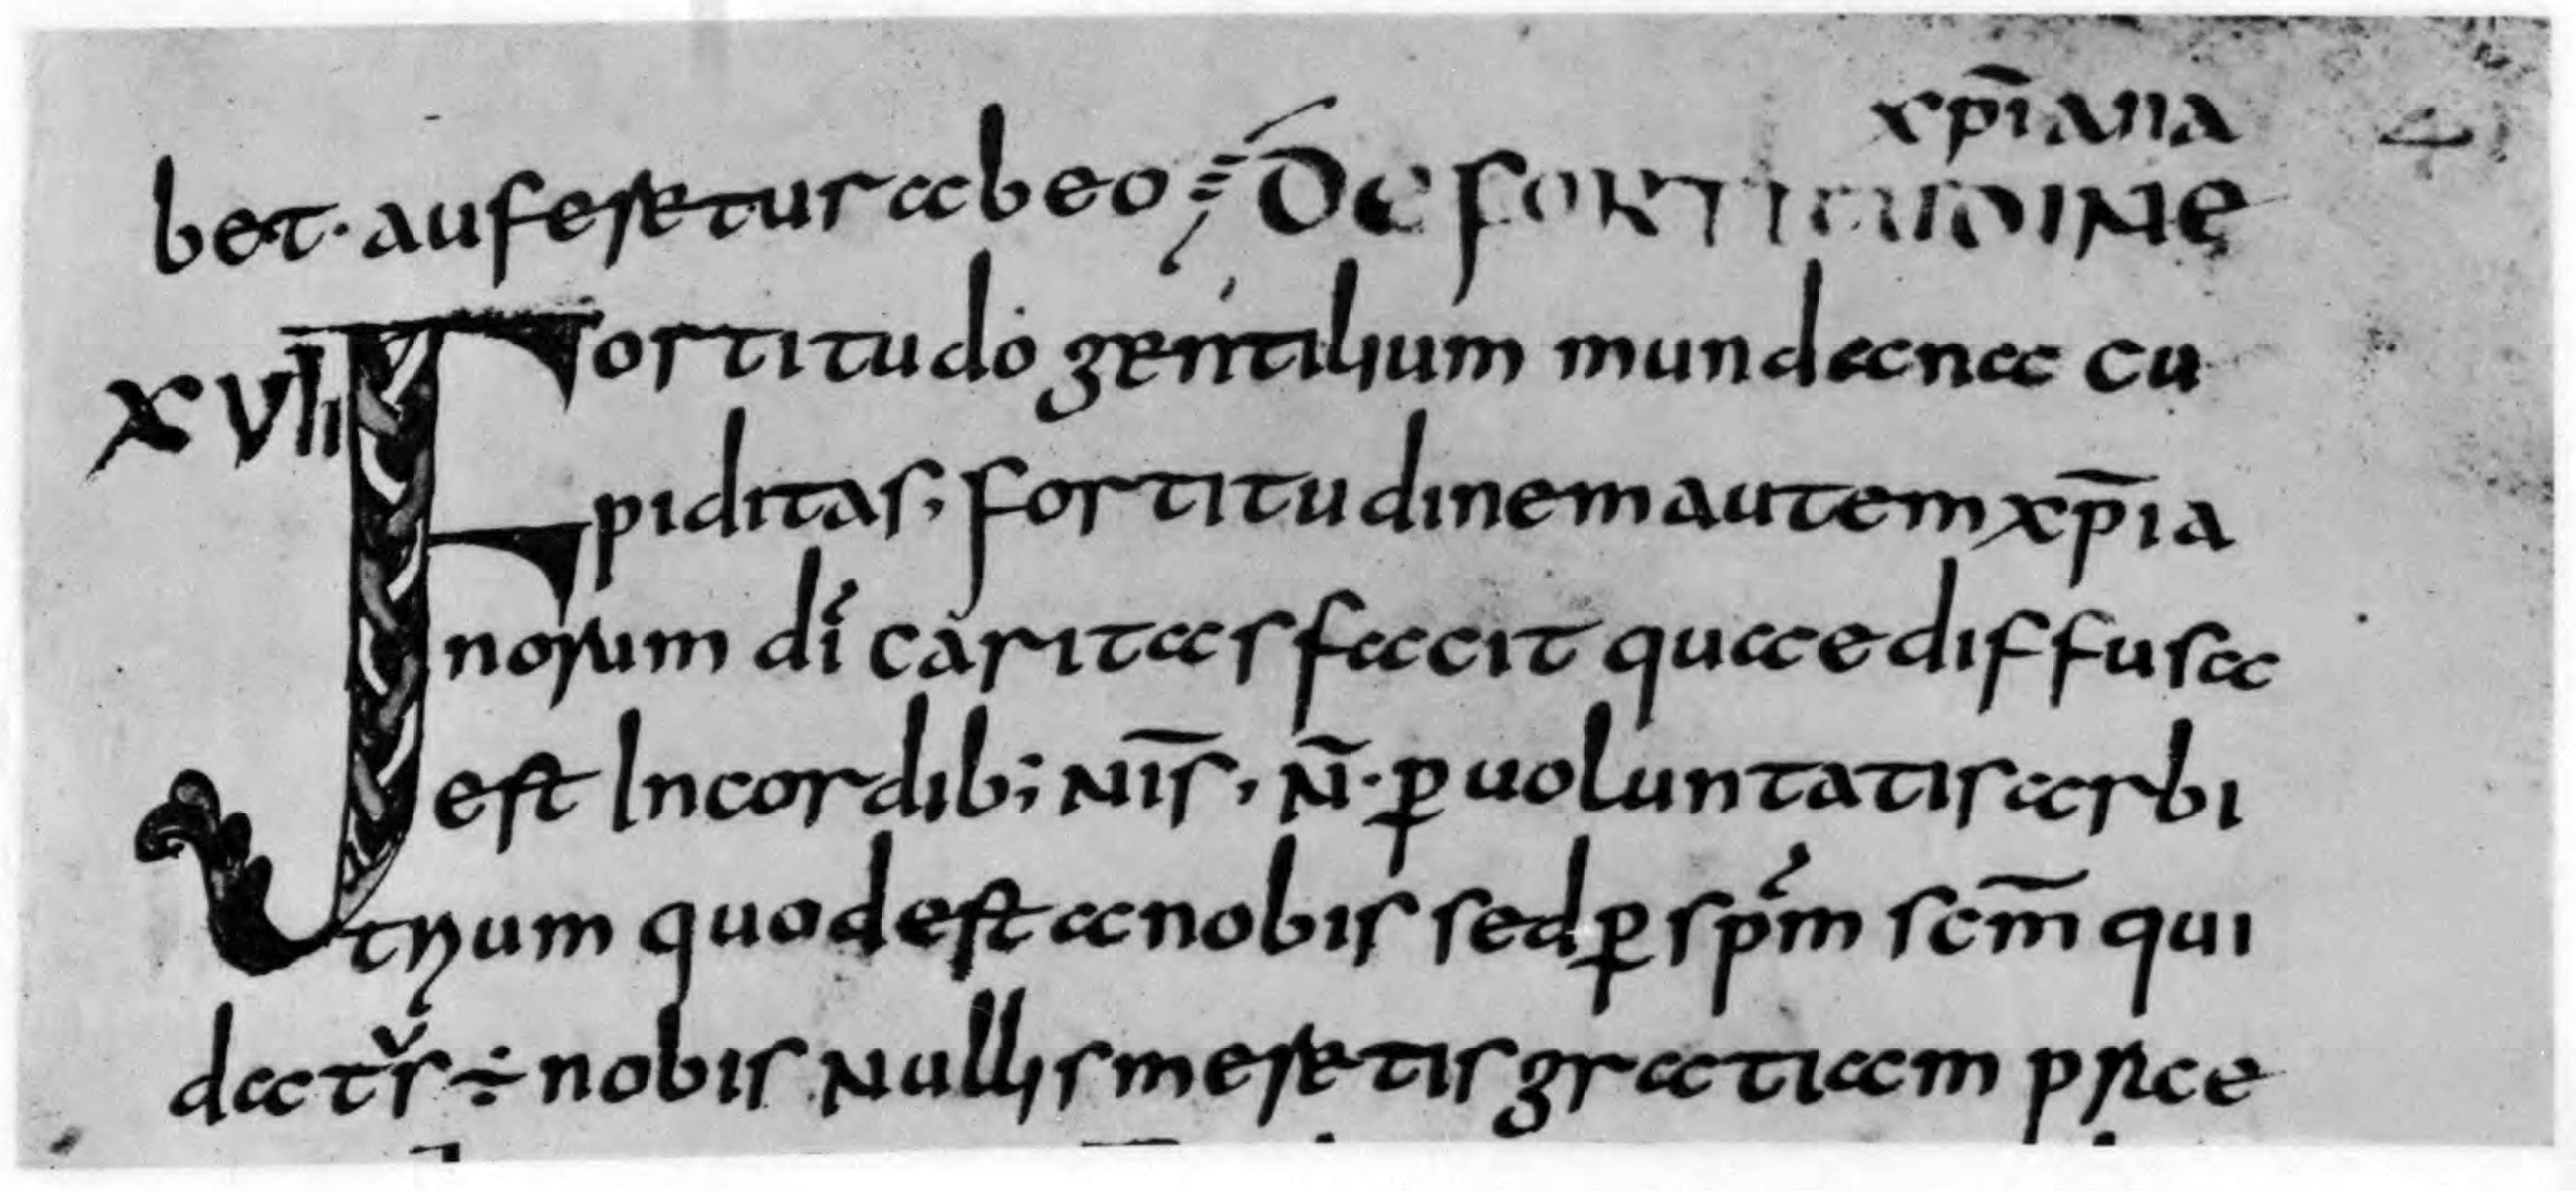 xp̄iana
bet· auferetur abeo De fortitudine
XVII Fortitudo gentilium mundana cu
piditas; fortitudinem autem xp̄ia
norum dī caritas facit quae diffusa
est In cordib; nr̄is, n̄· ꝑ uoluntatis arbi
trium quod est anobis sed ꝑ sp̄m sc̄m qui
datus ÷ nobis nullis meretis gratiam prȩce